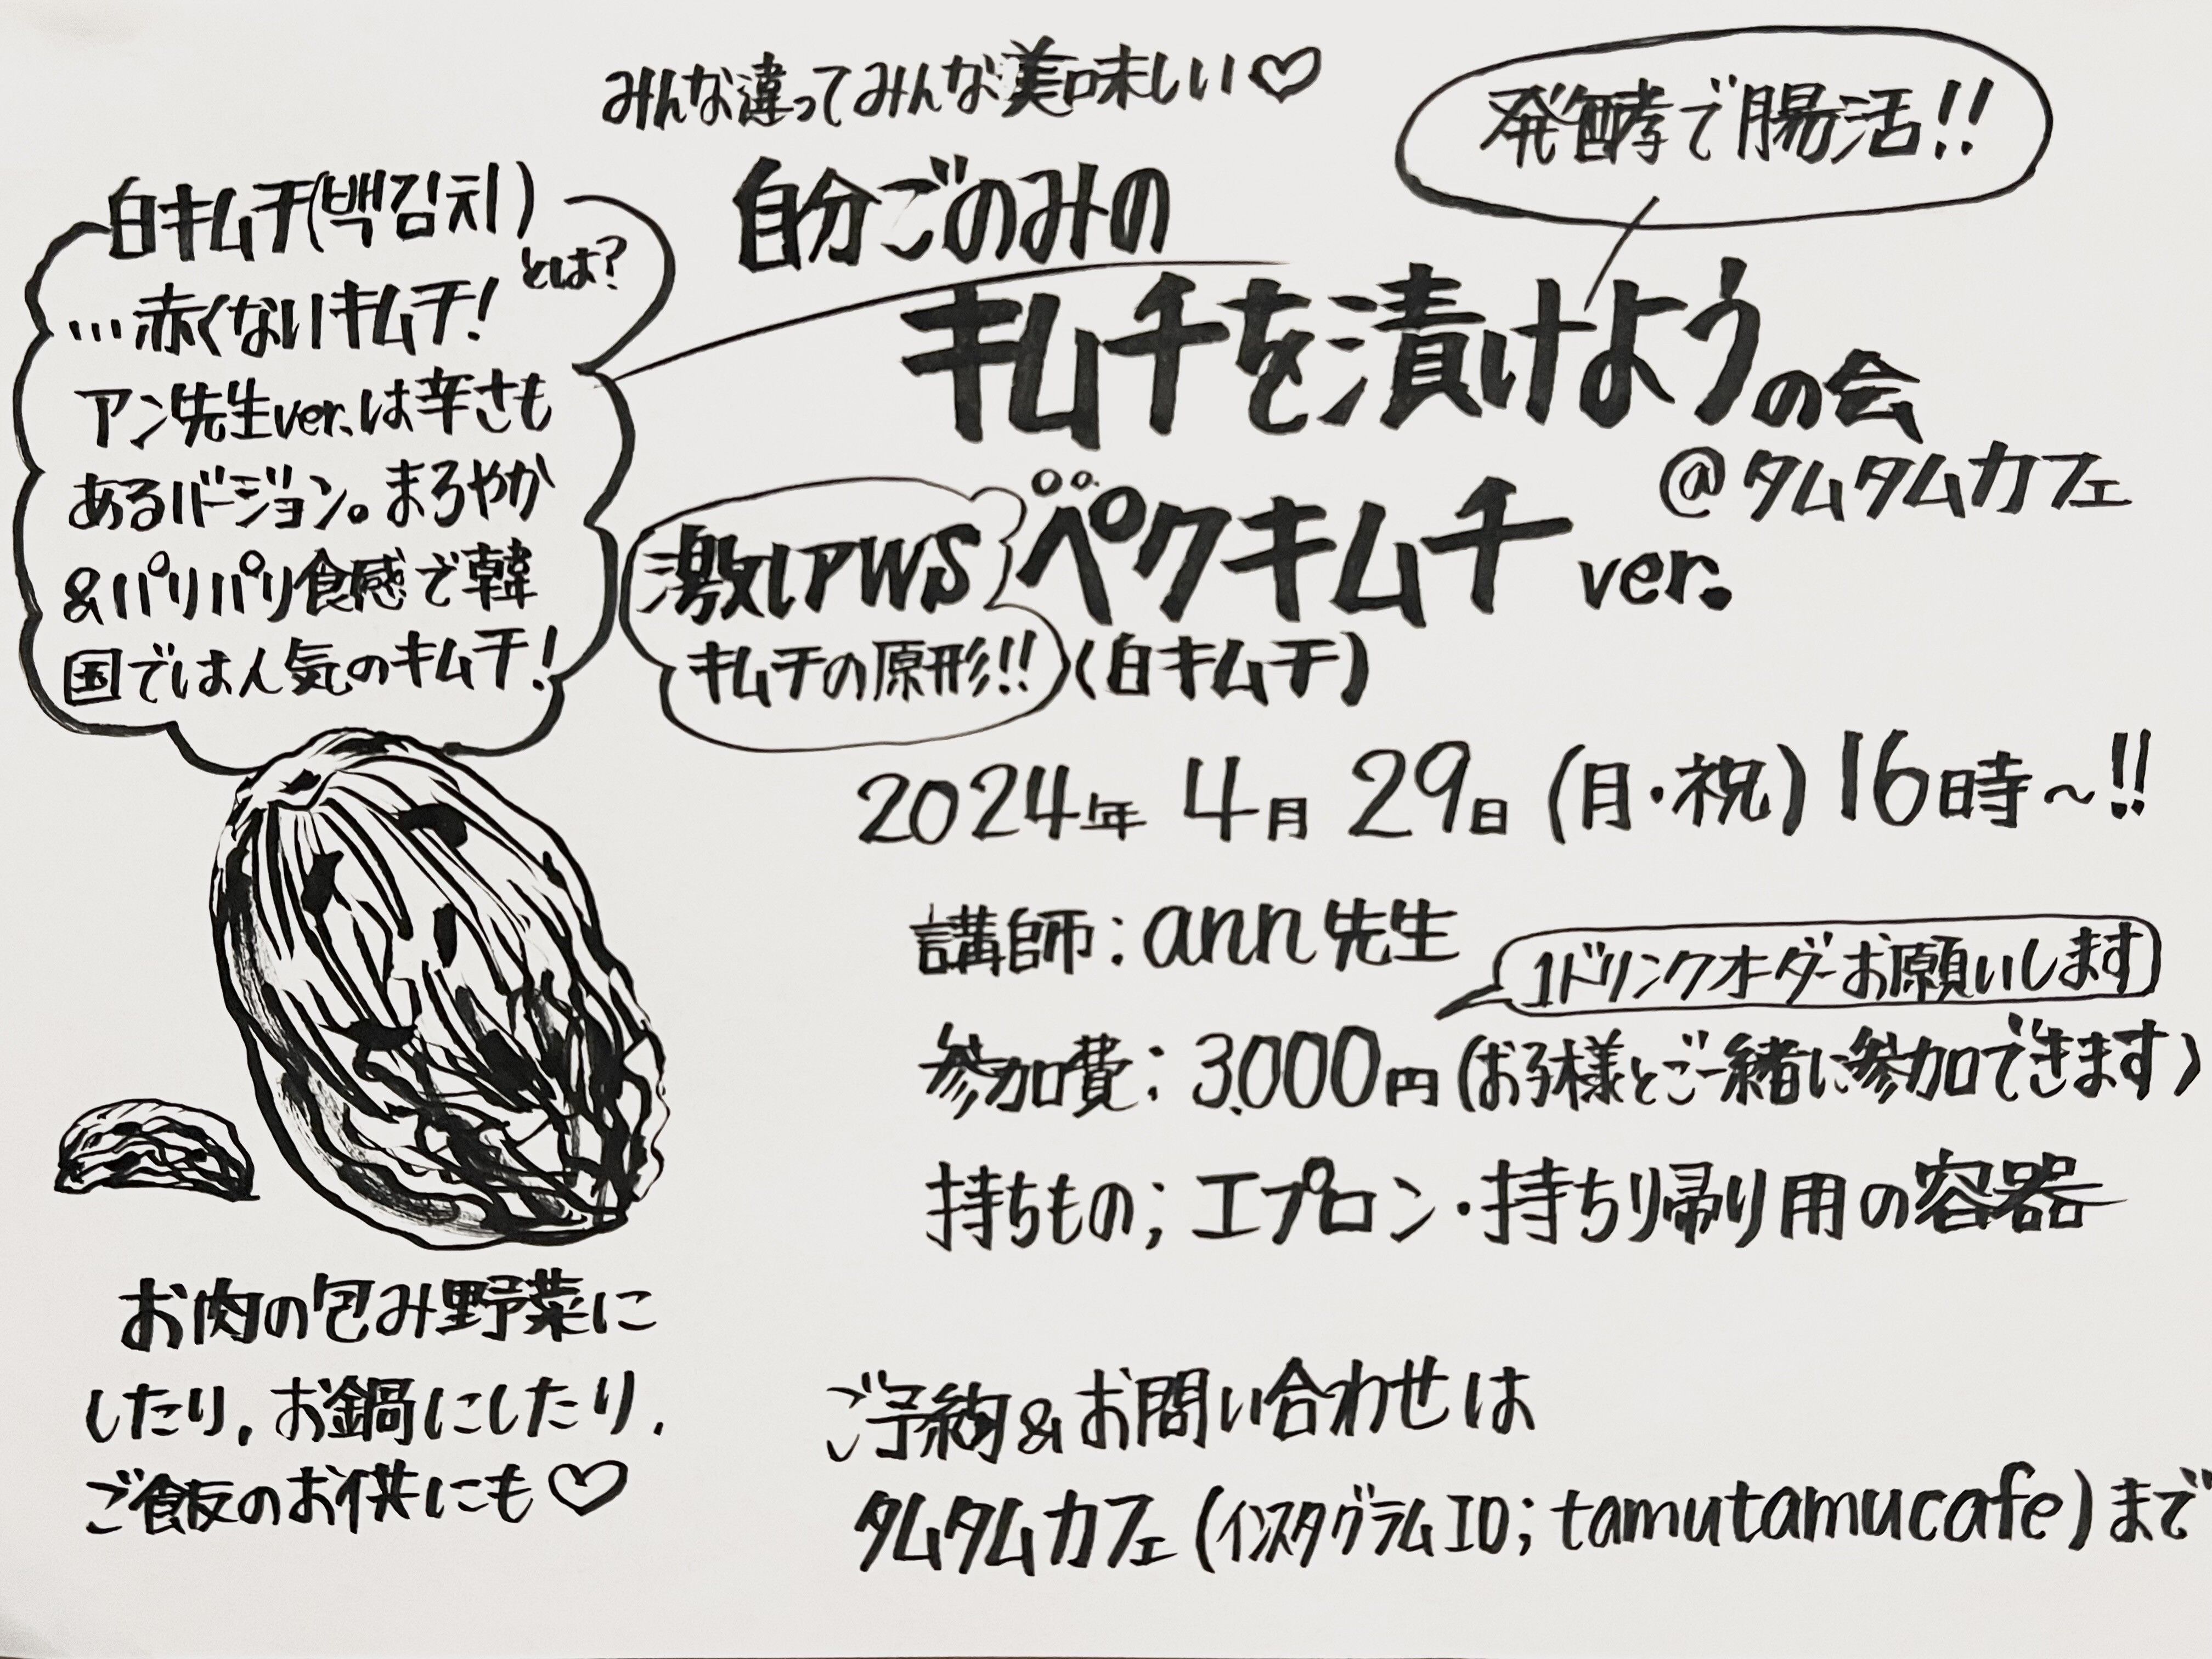 みんな違ってみんな美味しい♡
発酵で腸活!!
自分ごのみの
キムチを漬けようの会
@タムタムカフェ
激しアWS
キムチの原形!!
ペクキムチ ver.
(白キムチ)
白キムチ(백김치)
とは?
…赤くないキムチ!
アン先生ver.は辛さも
あるバージョン。まろやか
&パリパリ食感で韓
国では人気のキムチ!
2024年 4月 29日 (月・祝) 16時〜!!
講師:ann先生
1ドリンクオーダーお願いします
参加費:3,000円(お子様とご一緒に参加できます)
持ちもの;エプロン・持ち帰り用の容器
お肉の包み野菜に
したり,お鍋にしたり,
ご飯のお供にも♡
ご予約&お問い合わせは
タムタムカフェ(インスタグラムID;tamutamucafe)まで